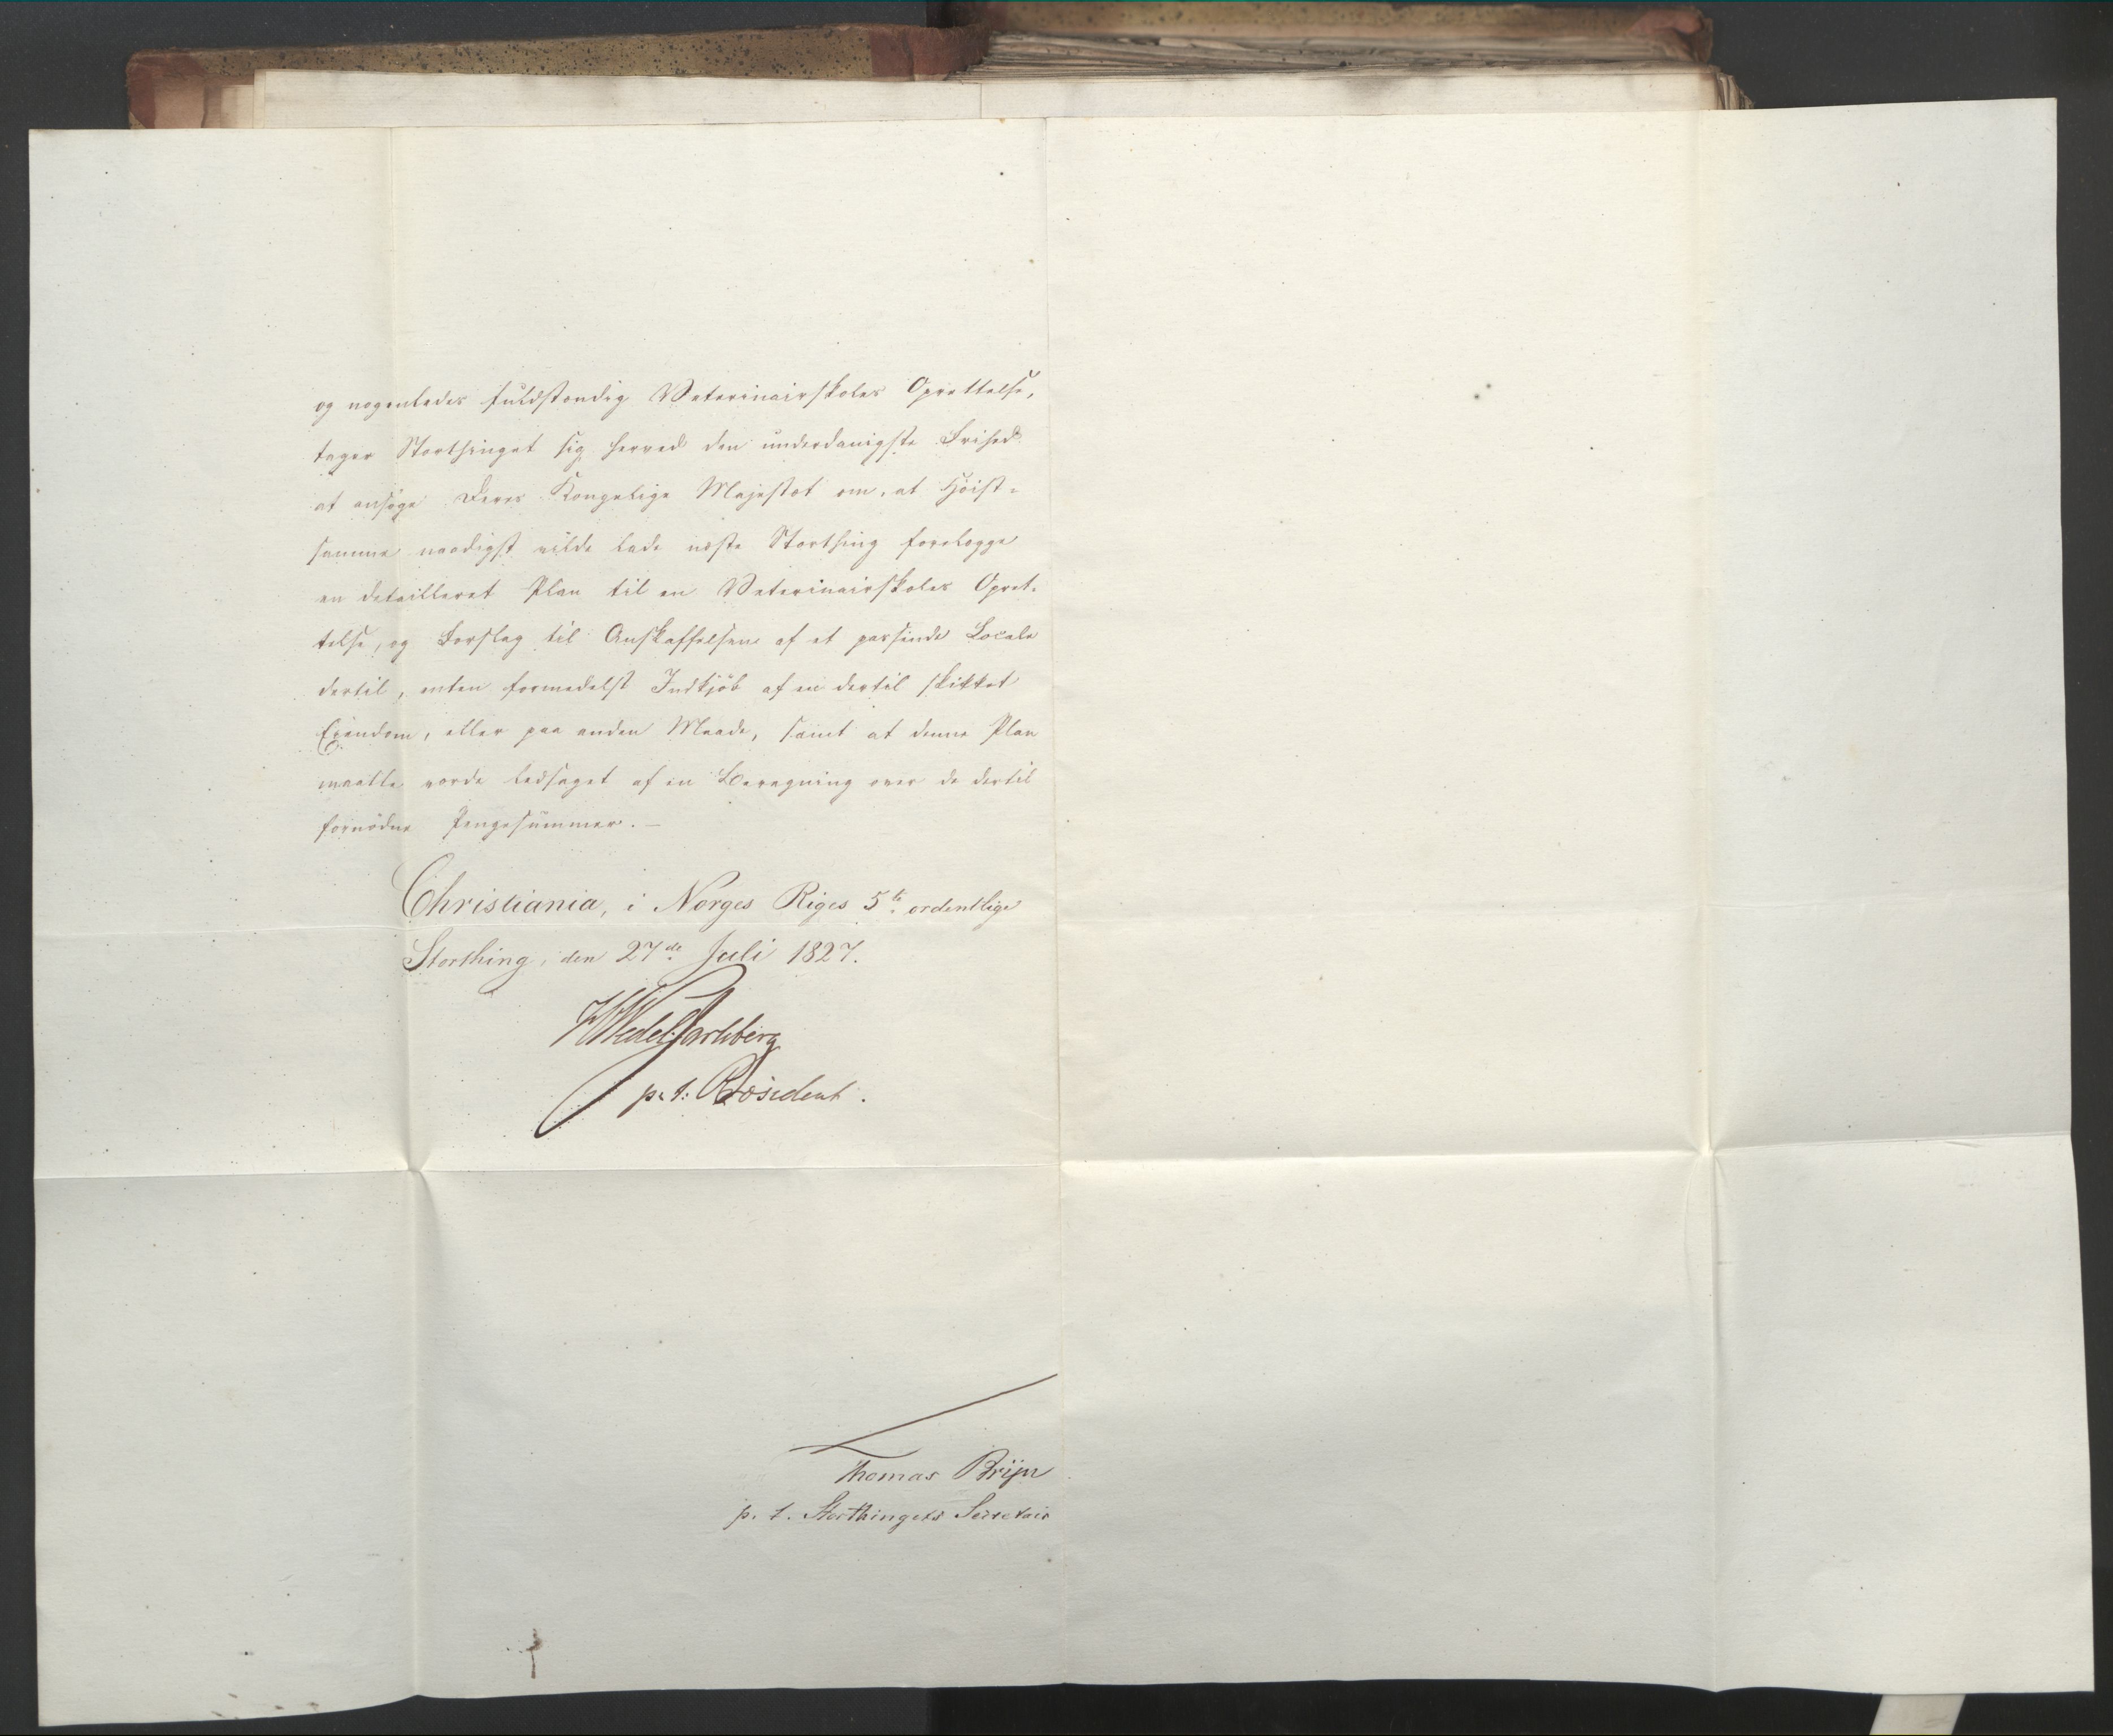 og nogenledes fuldstændig Veterinairskoles Oprettelse,
tager Storthinget sig herved den underdanigste Frihed
at ansøge Deres Kongelige Majestæt om, at Høist-
samme naadigst vilde lade næste Storthing forelægge
en detailleret Plan til en Veterinairskoles Opret-
telse, og Forslag til Anskaffelsen af et passende Locale
dertil, enten formedelst Indkjøb af en dertil skikket
Eiendom, eller paa anden Maade, samt at denne Plan
maatte vorde ledsaget af en Beregning over de dertil
fornødne Pengesummer. —
Christiania, i Norges Riges 5te ordentlige
Storthing, den 27de Juli 1827.
HWedel Jarlsberg
p. t: Præsident.
Thomas Bryn
p. t. Storthingets Secretair